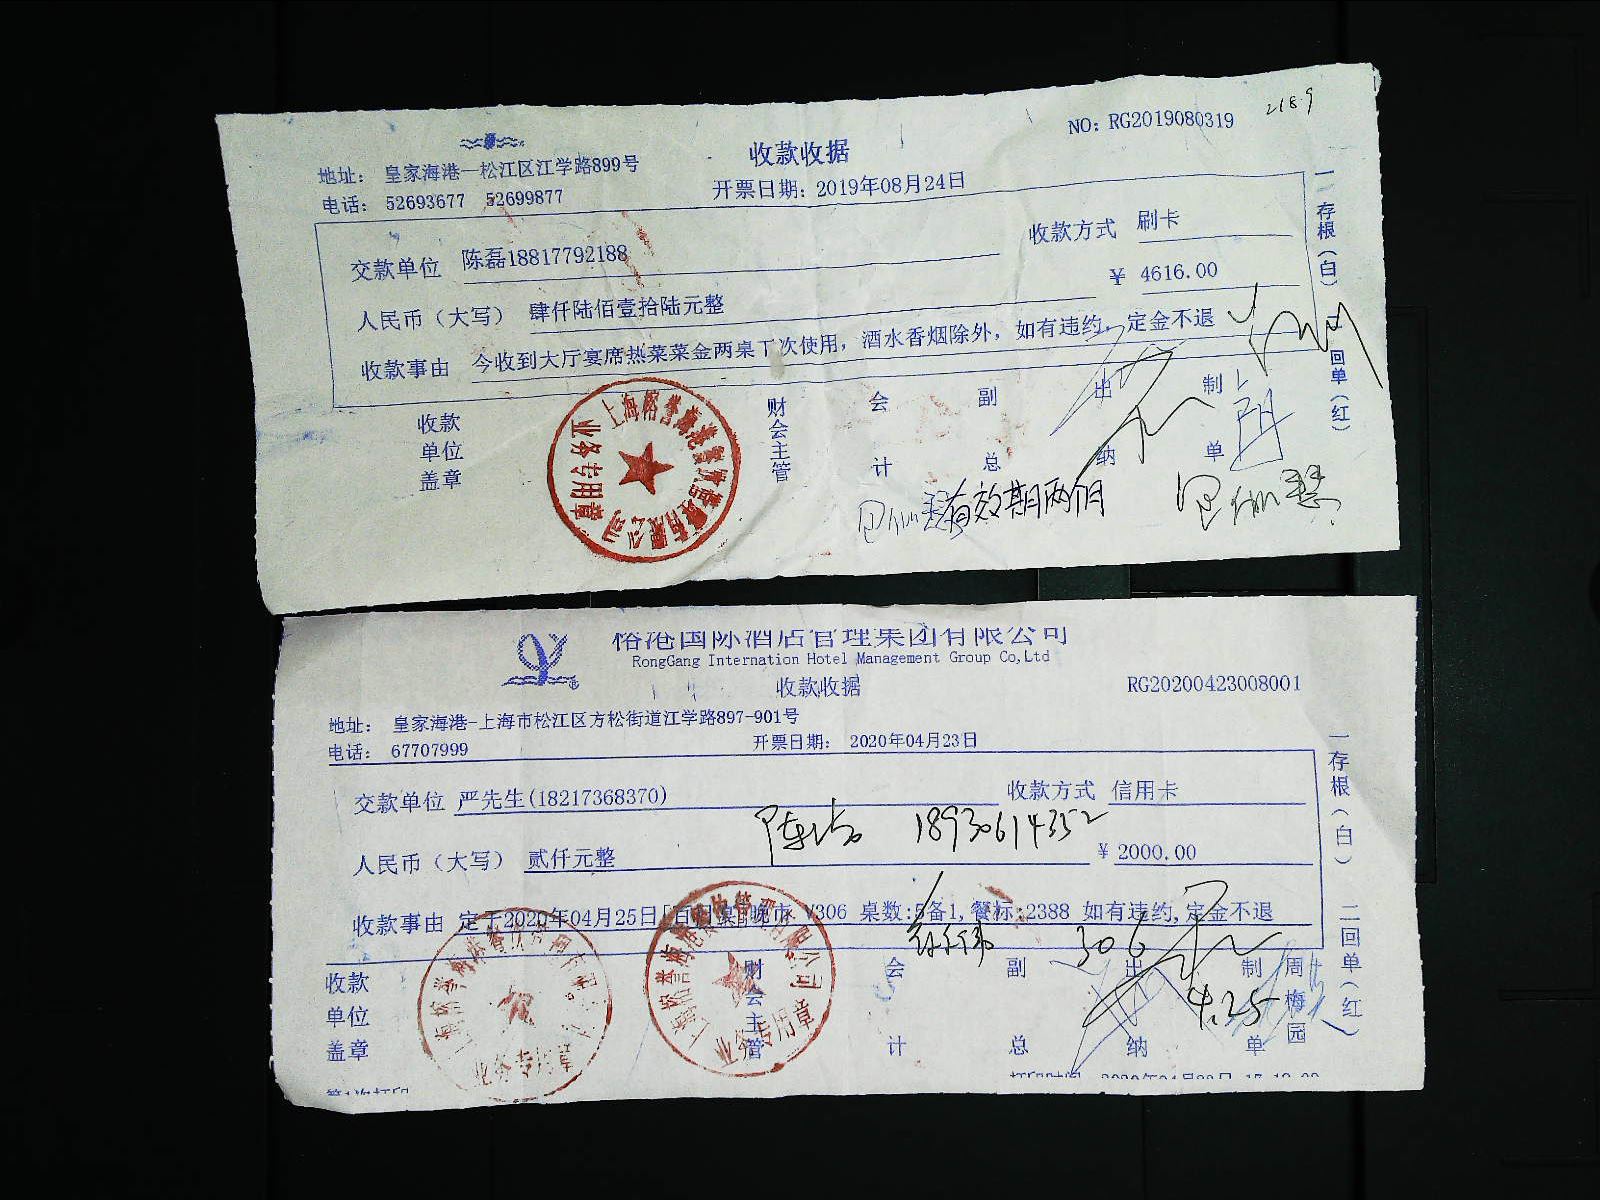 NO: RG2019080319
218.9
收款收据
地址： 皇家海港一松江区江学路899号
电话： 52693677 52699877
开票日期： 2019年08月24日
交款单位 陈磊18817792188
收款方式 刷卡
人民币（大写） 肆仟陆佰壹拾陆元整
￥ 4616.00
收款事由 今收到大厅宴席热菜菜金两桌丁次使用，酒水香烟除外，如有违约，定金不退
一存根（白）
二回单（红）
收款单位盖章
财会主管
会计
副总
出纳
制单
业务专用章
有效期两个月
榕港国际酒店管理集团有限公司
RongGang Internation Hotel Management Group Co,Ltd
收款收据
RG20200423008001
地址： 皇家海港-上海市松江区方松街道江学路897-901号
电话： 67707999
开票日期： 2020年04月23日
交款单位 严先生(18217368370)
收款方式 信用卡
18930614352
人民币（大写） 贰仟元整
￥ 2000.00
收款事由 定于2020年04月25日[百日宴]晚市 V306 桌数:5备1,餐标:2388 如有违约,定金不退
306
4.25
一存根（白）
二回单（红）
收款单位盖章
财会主管
会计
副总
出纳
制单
周梅园
业务专用章
业务专用章